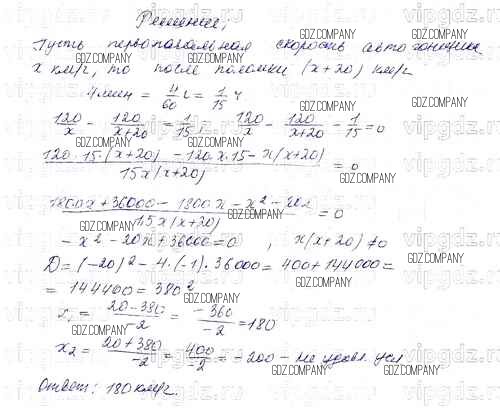 Решение,
Пусть первоначальная скорость автогонщика
x км/ч, то после поломки (x+20) км/ч
4 мин = 4/60 ч = 1/15 ч
120/x - 120/(x+20) = 1/15; 120/x - 120/(x+20) - 1/15 = 0
(120·15·(x+20) - 120·x·15 - x(x+20))/(15x(x+20)) = 0
(1800x + 36000 - 1800x - x² - 20x)/(15x(x+20)) = 0
-x² - 20x + 36000 = 0, x(x+20) ≠ 0
D = (-20)² - 4·(-1)·36000 = 400 + 144000 =
= 144400 = 380²
x₁ = (20-380)/-2 = -360/-2 = 180
x₂ = (20+380)/-2 = 400/-2 = -200 - не удовл. усл
Ответ: 180 км/ч.
GDZ.COMPANY
vipgdz.ru